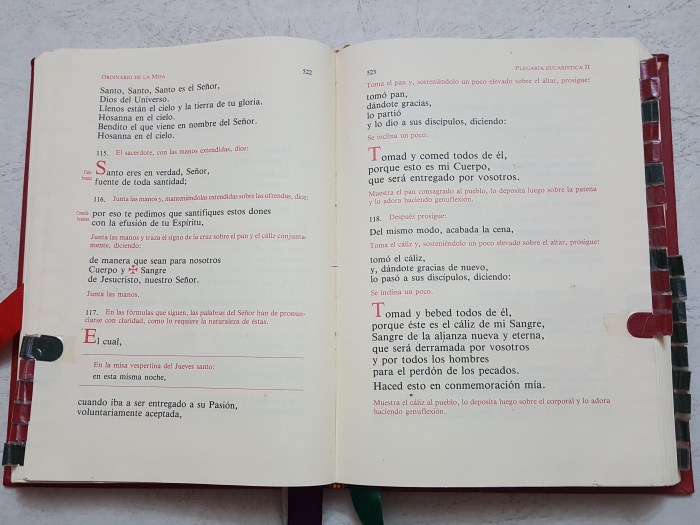 ORDINARIO DE LA MISA 522
Santo, Santo, Santo es el Señor,
Dios del Universo.
Llenos están el cielo y la tierra de tu gloria.
Hosanna en el cielo.
Bendito el que viene en nombre del Señor.
Hosanna en el cielo.
115. El sacerdote, con las manos extendidas, dice:
Santo eres en verdad, Señor,
fuente de toda santidad;
116. Junta las manos y, manteniéndolas extendidas sobre las ofrendas, dice:
por eso te pedimos que santifiques estos dones
con la efusión de tu Espíritu,
Junta las manos y traza el signo de la cruz sobre el pan y el cáliz conjunta-
mente, diciendo:
de manera que sean para nosotros
Cuerpo y ✠ Sangre
de Jesucristo, nuestro Señor.
Junta las manos.
117. En las fórmulas que siguen, las palabras del Señor han de pronun-
ciarse con claridad, como lo requiere la naturaleza de éstas.
El cual,
En la misa vespertina del Jueves santo:
en esta misma noche,
cuando iba a ser entregado a su Pasión,
voluntariamente aceptada,
523 PLEGARIA EUCARÍSTICA II
Toma el pan y, sosteniéndolo un poco elevado sobre el altar, prosigue:
tomó pan,
dándote gracias,
lo partió
y lo dio a sus discípulos, diciendo:
Se inclina un poco.
Tomad y comed todos de él,
porque esto es mi Cuerpo,
que será entregado por vosotros.
Muestra el pan consagrado al pueblo, lo deposita luego sobre la patena
y lo adora haciendo genuflexión.
118. Después prosigue:
Del mismo modo, acabada la cena,
Toma el cáliz y, sosteniéndolo un poco elevado sobre el altar, prosigue:
tomó el cáliz,
y, dándote gracias de nuevo,
lo pasó a sus discípulos, diciendo:
Se inclina un poco.
Tomad y bebed todos de él,
porque éste es el cáliz de mi Sangre,
Sangre de la alianza nueva y eterna,
que será derramada por vosotros
y por todos los hombres
para el perdón de los pecados.
Haced esto en conmemoración mía.
Muestra el cáliz al pueblo, lo deposita luego sobre el corporal y lo adora
haciendo genuflexión.